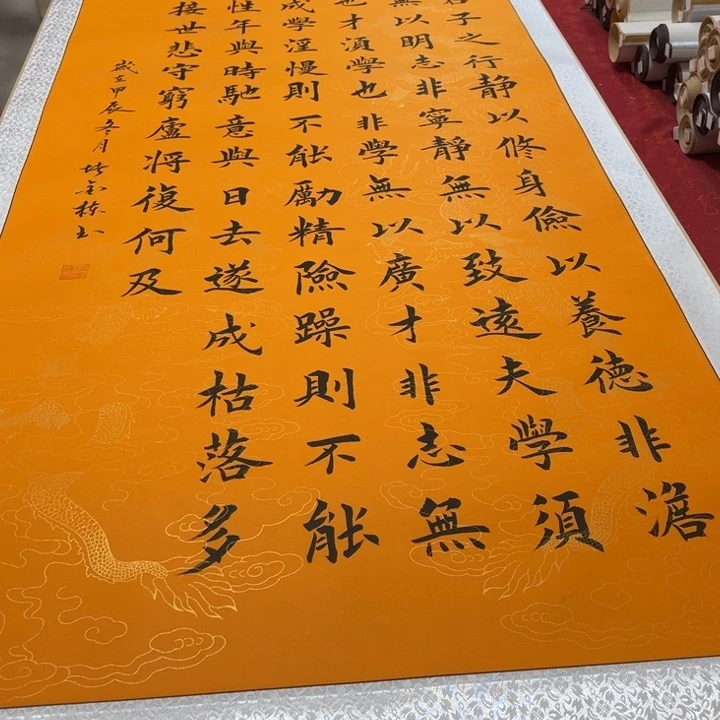 君子之行静以修身儉以養德非澹
無以明志非寧静無以致遠夫學須
也才須學也非學無以廣才非志無
成學淫慢則不能勵精險躁則不能
性年與時馳意與日去遂成枯落多
接世悲守窮廬將復何及
歲在甲辰冬月